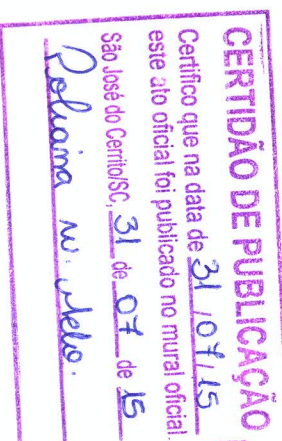 CERTIDÃO DE PUBLICAÇÃO
Certifico que na data de 31/07/15
este ato oficial foi publicado no mural oficial.
São José do Cerrito/SC, 31 de 07 de 15
Poliana W. Melo.